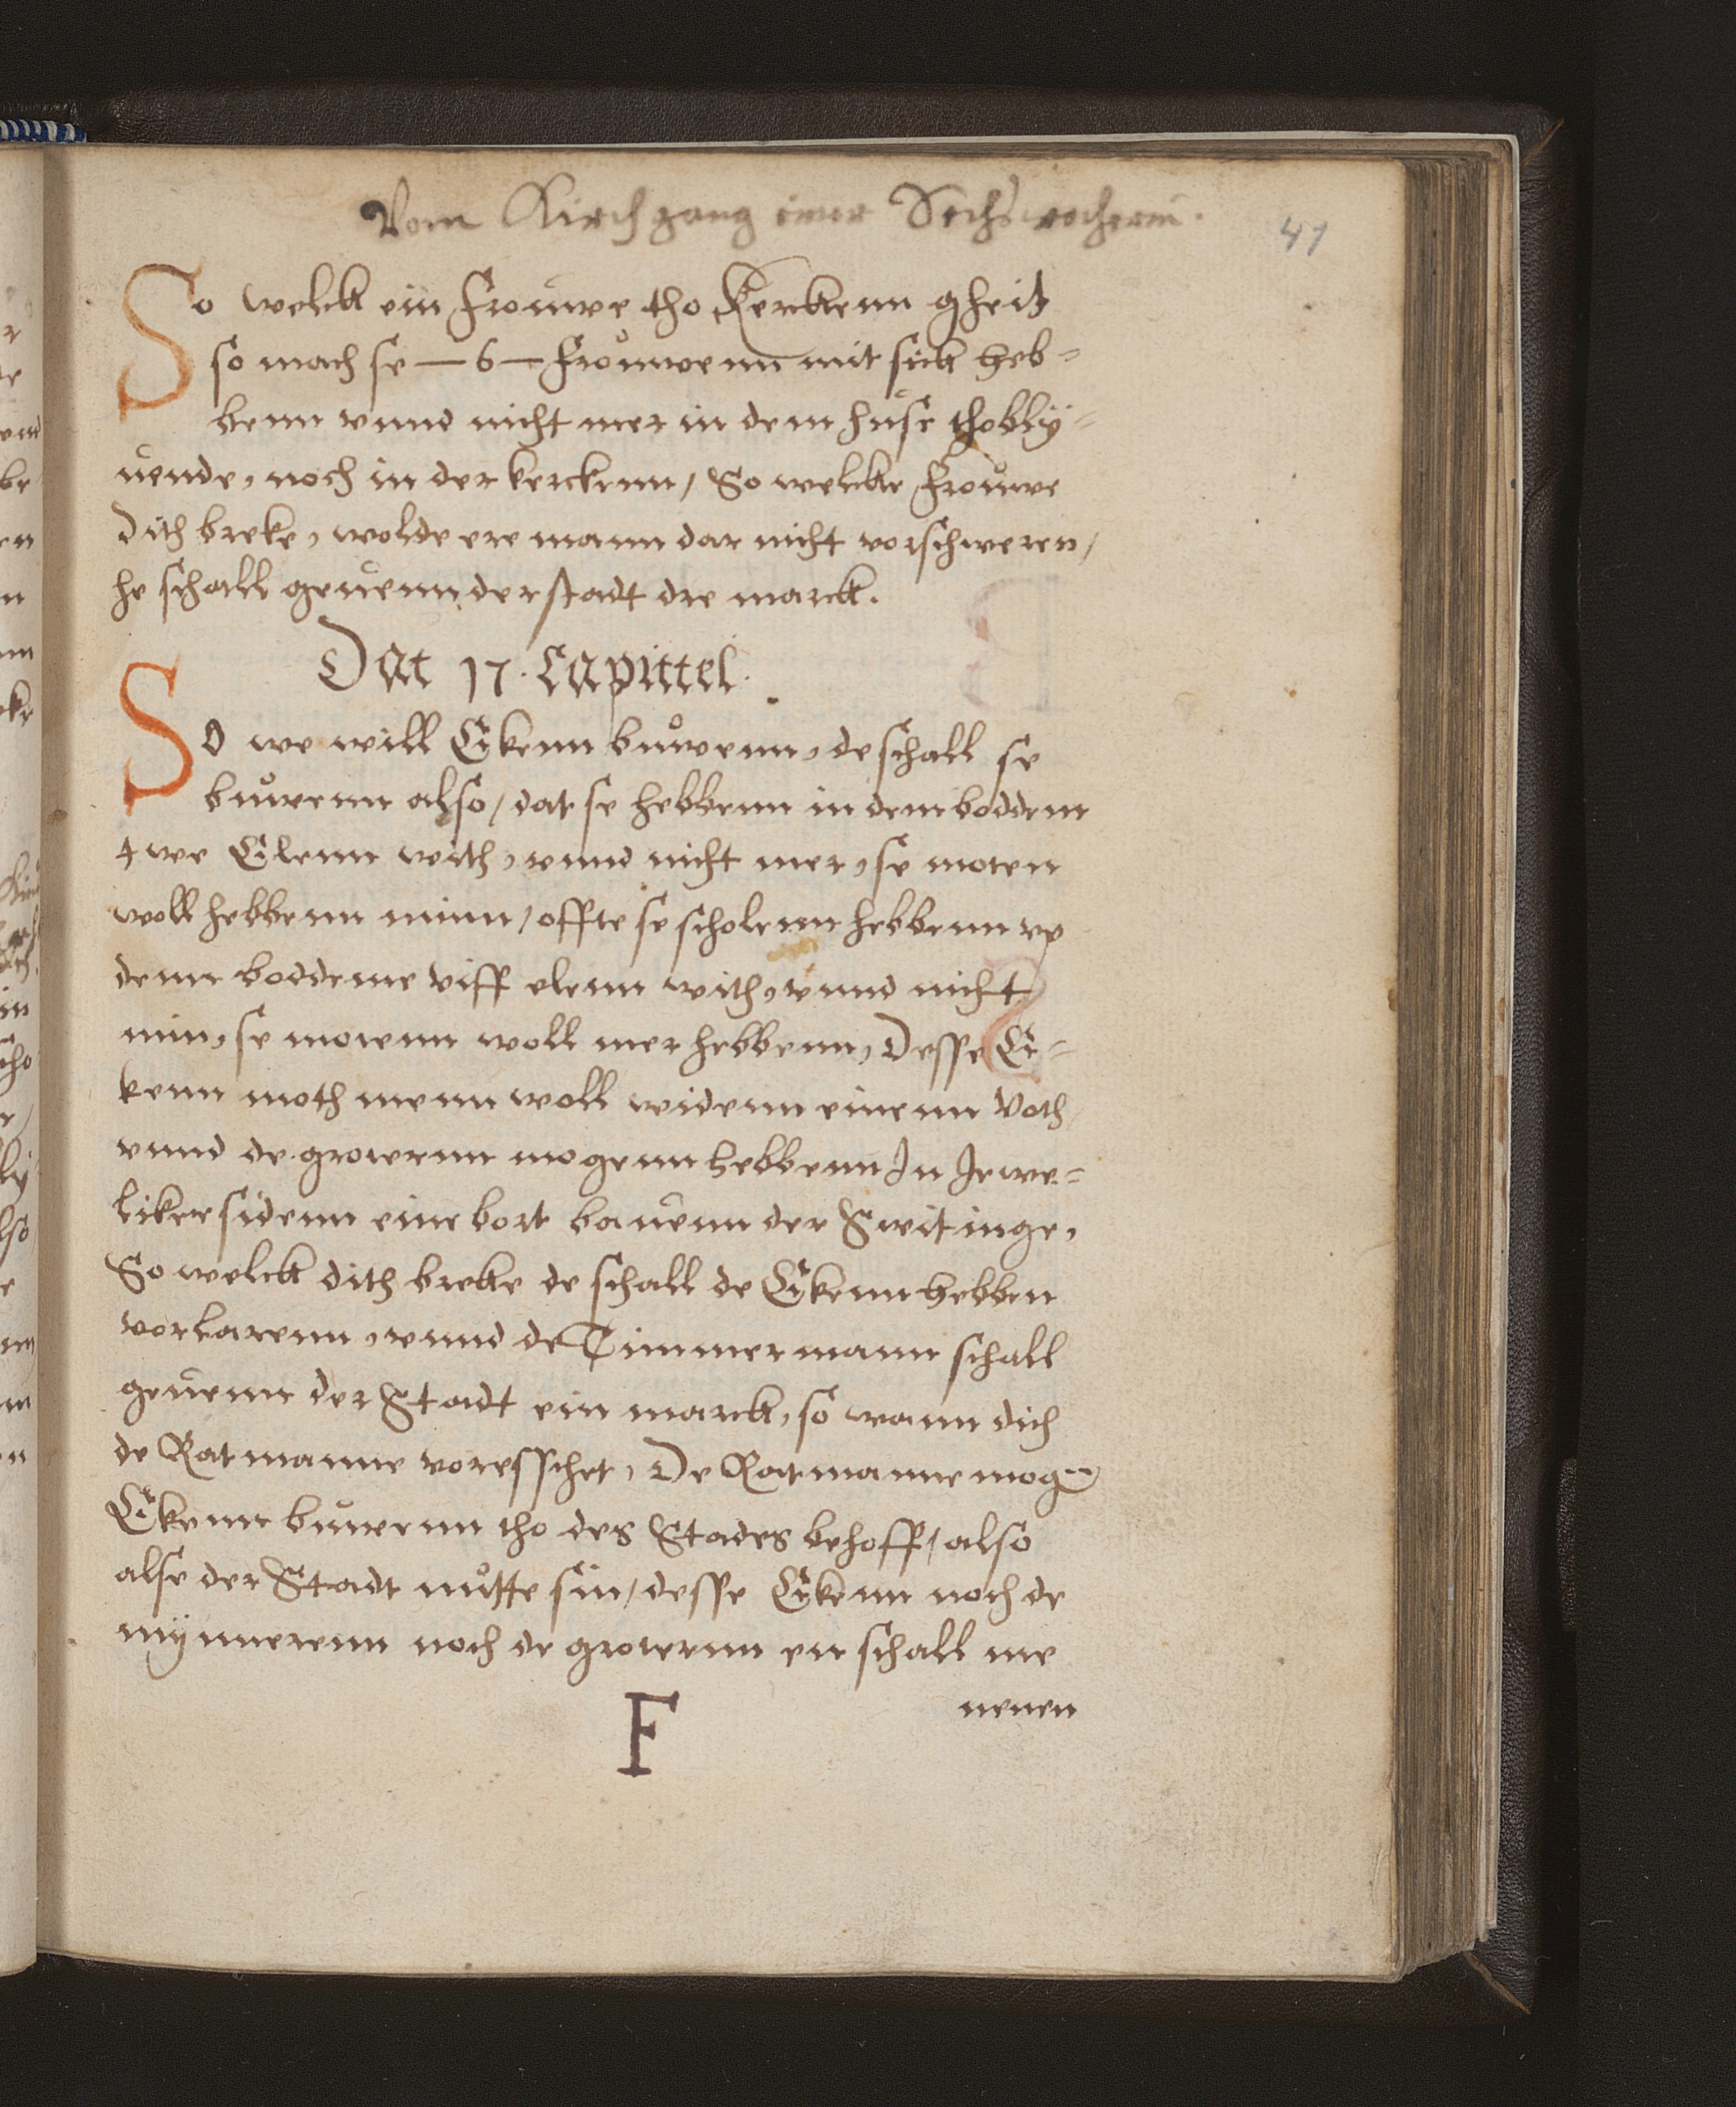 Vom Kirchgang einer Sechswocherin.
41
So welck ein Frouwe tho Kerckenn gheit
so mach se — 6 — Frouwenn mit sick heb=
benn vnnd nicht mer in dem huse thobly=
uende, noch in der kerckenn, So welcke Frouwe
dith breke, wolde ere mann dar nicht vorschweren,
he schall geuenn der stadt dre marck.
Dat 17. Capittel.
So we will Eikenn buwenn, de schall se
buwenn also, dat se hebbenn in dem boddem
twe Elenn with, vnnd nicht mer, se moten
woll hebbenn minn, offte se scholenn hebbenn vp
denn boddeme viff elenn with, vnnd nicht
min, se motenn woll mer hebbenn, Desse Ei=
kenn moth menn woll widenn einenn Voth
vnnd de groternn mogenn hebbenn In Iewe=
liker sidenn eine bort bauenn der Switinge,
So welck dith breke de schall de Eikenn hebben
vorlarenn, vnnd de Timmermann schall
geuenn der Stadt ein marck, so wann dich
de Ratmanne voresschet, De Ratmanne mogen
Eikenn buwenn tho des Stades behoff, also
alse der Stadt nutte sin, desse Eikenn noch de
mynnerenn noch de groternn en schall me
nenen
F